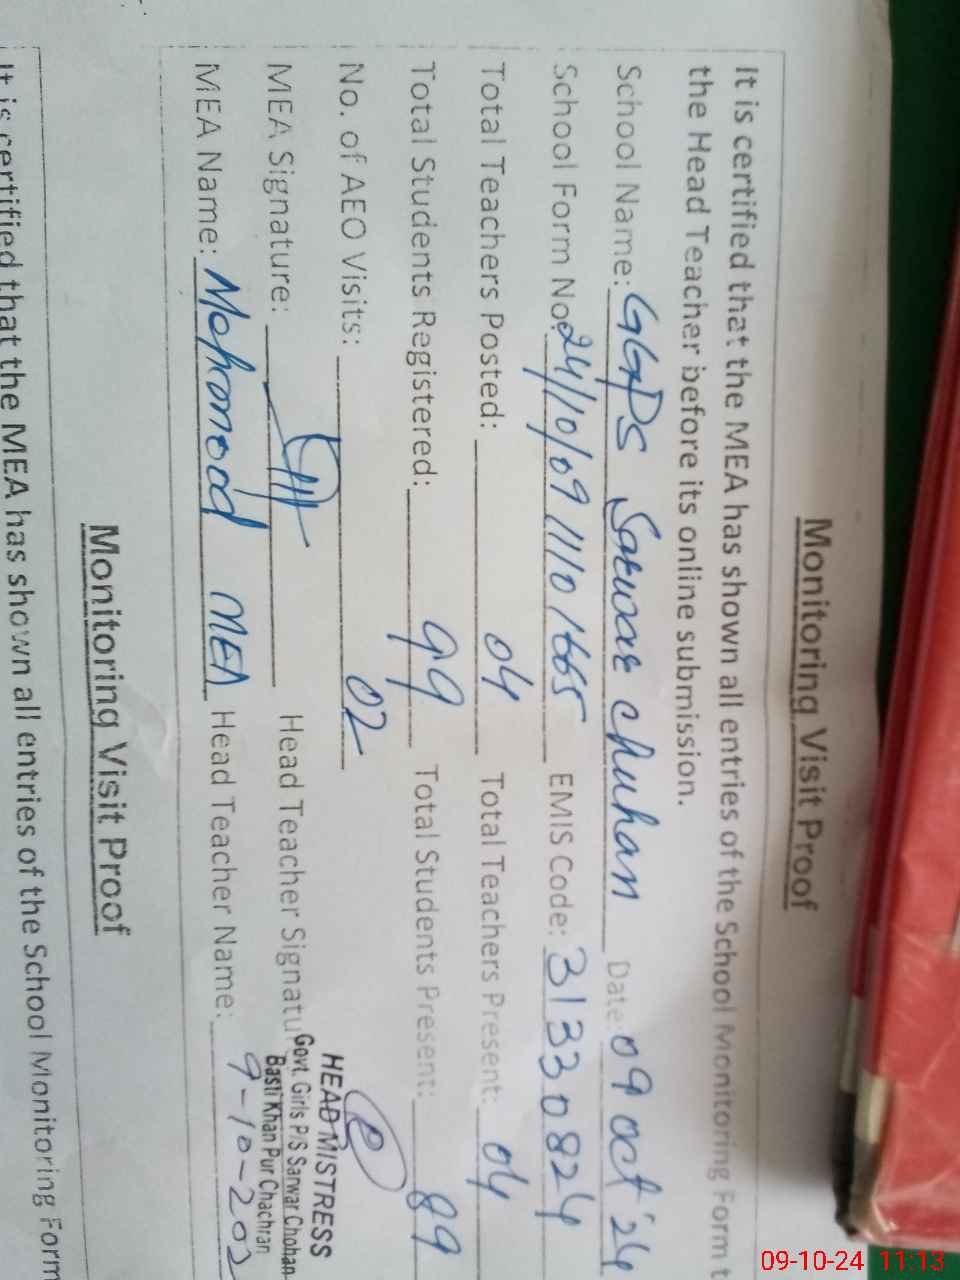 Monitoring Visit Proof
It is certified that the MEA has shown all entries of the School Monitoring Form t
the Head Teacher before its online submission.
School Name: GGPS Sarwar Chuhan Date: 09 Oct '24
School Form No: 24/10/09 11101665 EMIS Code: 31330824
Total Teachers Posted: 04 Total Teachers Present: 04
Total Students Registered: 99 Total Students Present: 89
No. of AEO Visits: 02
MEA Signature: Head Teacher Signatu
HEAD MISTRESS
Govt. Girls P/S Sarwar Chohan
Basti Khan Pur Chachran
MEA Name: Mehmood MEA Head Teacher Name: 9-10-202
Monitoring Visit Proof
It is certified that the MEA has shown all entries of the School Monitoring Form
09-10-24 11:13